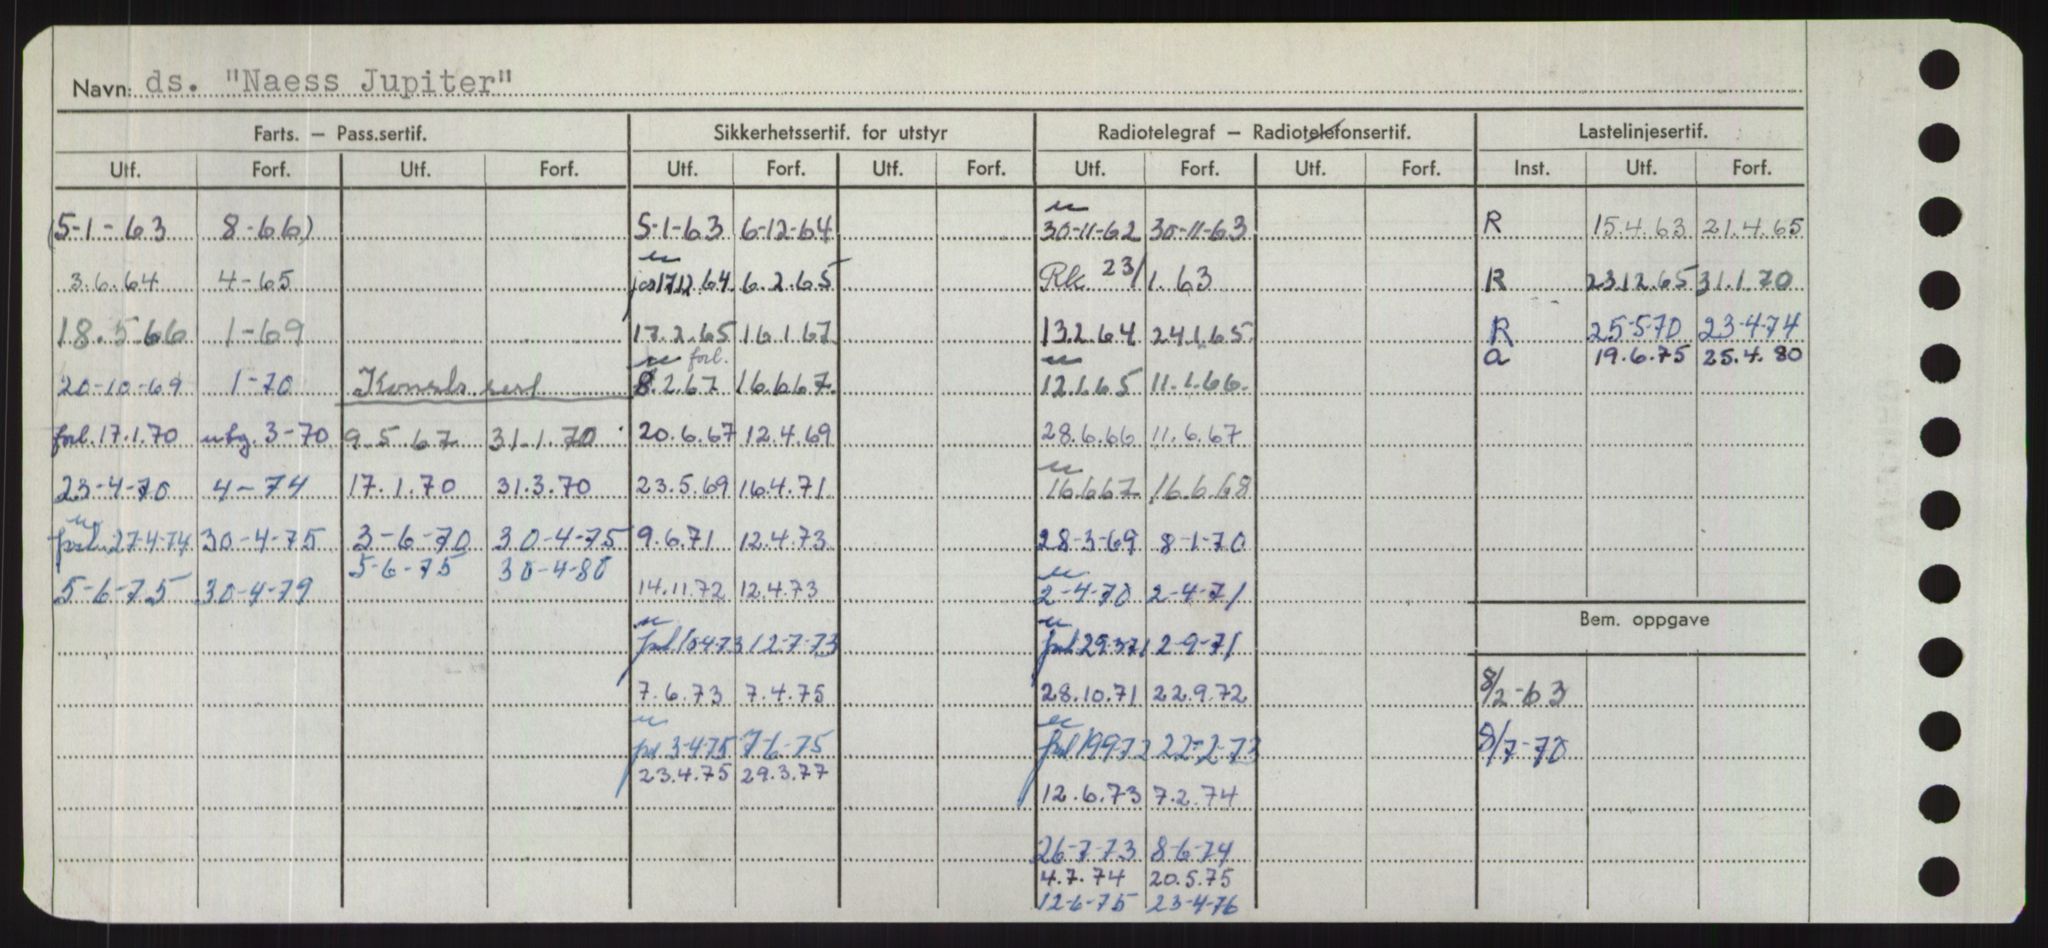 Navn: ds. "Naess Jupiter"
Farts. – Pass.sertif. Sikkerhetssertif. for utstyr Radiotelegraf – Radiotelefonsertif. Lastelinjesertif.
Utf. Forf. Utf. Forf. Utf. Forf. Utf. Forf. Utf. Forf. Utf. Forf. Inst. Utf. Forf.
(5-1-63 8-66) 5-1-63 6-12-64 30-11-62 30-11-63 R 15.4.63 21.4.65
3.6.64 4-65 17.12.64 6.2.65 Rk 23/1.63 R 23.12.65 31.1.70
18.5.66 1-69 17.2.65 16.1.67 13.2.64 24.1.65 R 25-5-70 23-4-74
forl. a 19.6.75 25.4.80
20-10-69 1-70 8.2.67 16.6.67 12.1.65 11.1.66
forl. 17.1.70 utg. 3-70 9.5.67 31.1.70 20.6.67 12.4.69 28.6.66 11.6.67
23-4-70 4-74 17.1.70 31.3.70 23.5.69 16.4.71 16.6.67 16.6.68
forl. 27-4-74 30-4-75 3-6-70 30-4-75 9.6.71 12.4.73 28-3-69 8-1-70
5-6-75 30-4-80
5-6-75 30-4-79 14.11.72 12.4.73 2-4-70 2-4-71
Bem. oppgave
forl 10-4-73 12-7-73 forl 29.3.71 2-9-71
7.6.73 7.4.75 28.10.71 22.9.72 8/2-63
forl 3-4-75 7-6-75 forl 19.9.72 22-2-73 8/7-70
23.4.75 29.3.77
12.6.73 7.2.74
26-7-73 8-6-74
4.7.74 20.5.75
12-6-75 23-4-76